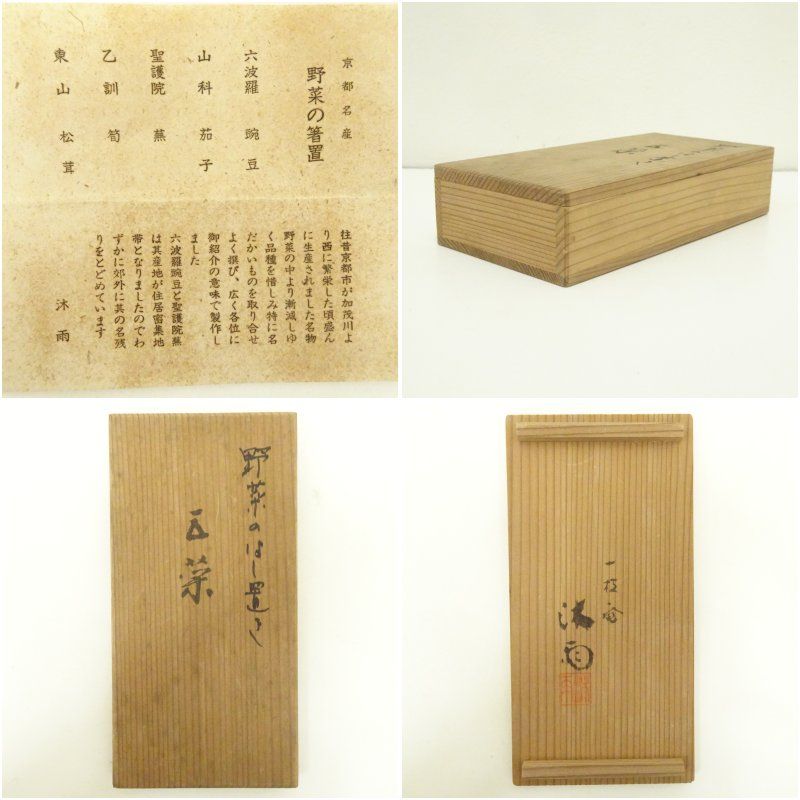 京都名産
野菜の箸置
六波羅 豌豆
山科茄子
聖護院 蕪
乙訓 筍
東山 松茸
往昔京都市が加茂川よ
り西に繁栄した頃盛ん
に生産されました名物
野菜の中より漸減しゆ
く品種を惜しみ特に名
だかいものを取り合せ
よく撰び、広く各位に
御紹介の意味で製作し
ました
六波羅豌豆と聖護院蕪
は其産地が住居密集地
帯となりましたのでわ
ずかに郊外に其の名残
りをとどめています
沐雨
野菜のはし置き
五菜
沐雨